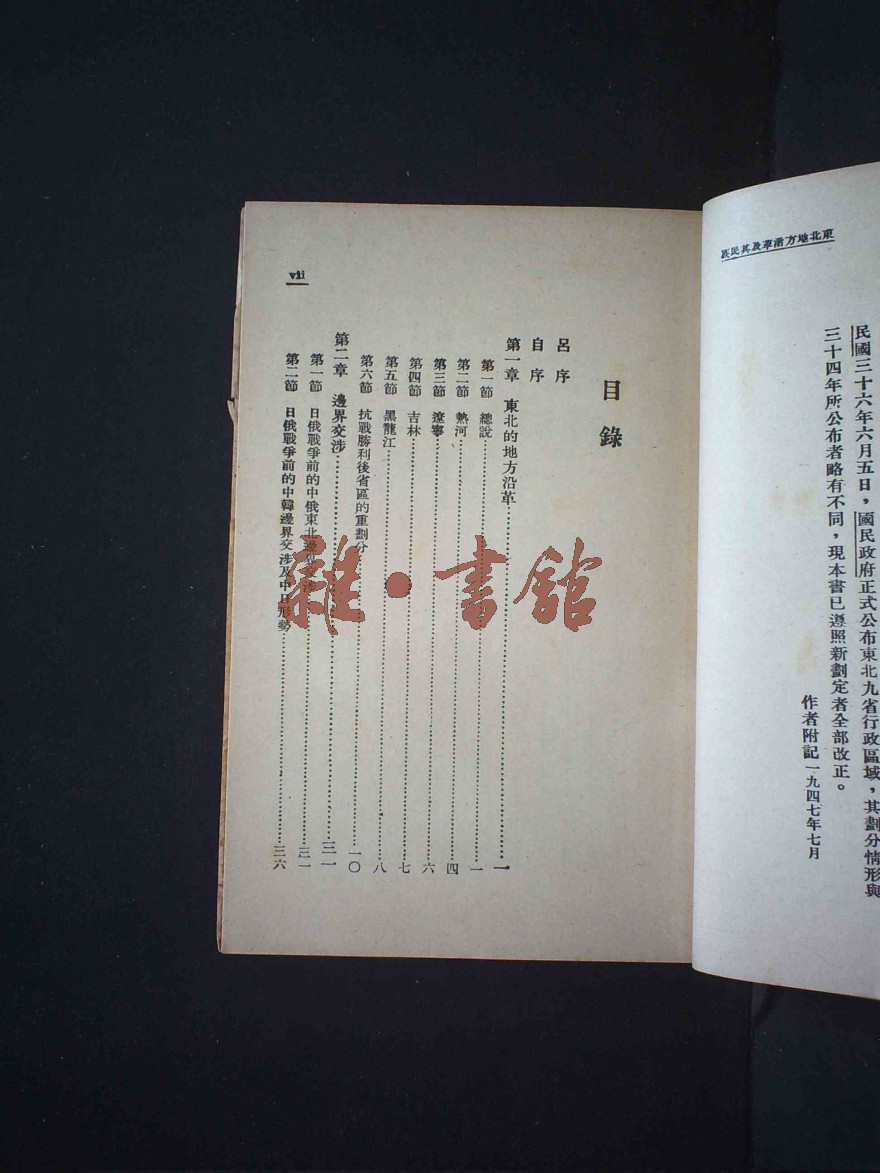 東北地方沿革及其民族
民國三十六年六月五日，國民政府正式公布東北九省行政區域，其劃分情形與
三十四年所公布者略有不同，現本書已遵照新劃定者全部改正。
作者附記一九四七年七月
vii
目錄
呂序
自序
第一章 東北的地方沿革……一
第一節 總說……一
第二節 熱河……四
第三節 遼寧……六
第四節 吉林……七
第五節 黑龍江……八
第六節 抗戰勝利後省區的重劃分……一〇
第二章 邊界交涉……三一
第一節 日俄戰爭前的中俄東北邊界交涉……三一
第二節 日俄戰爭前的中韓邊界交涉及中日形勢……三六
雜·書館